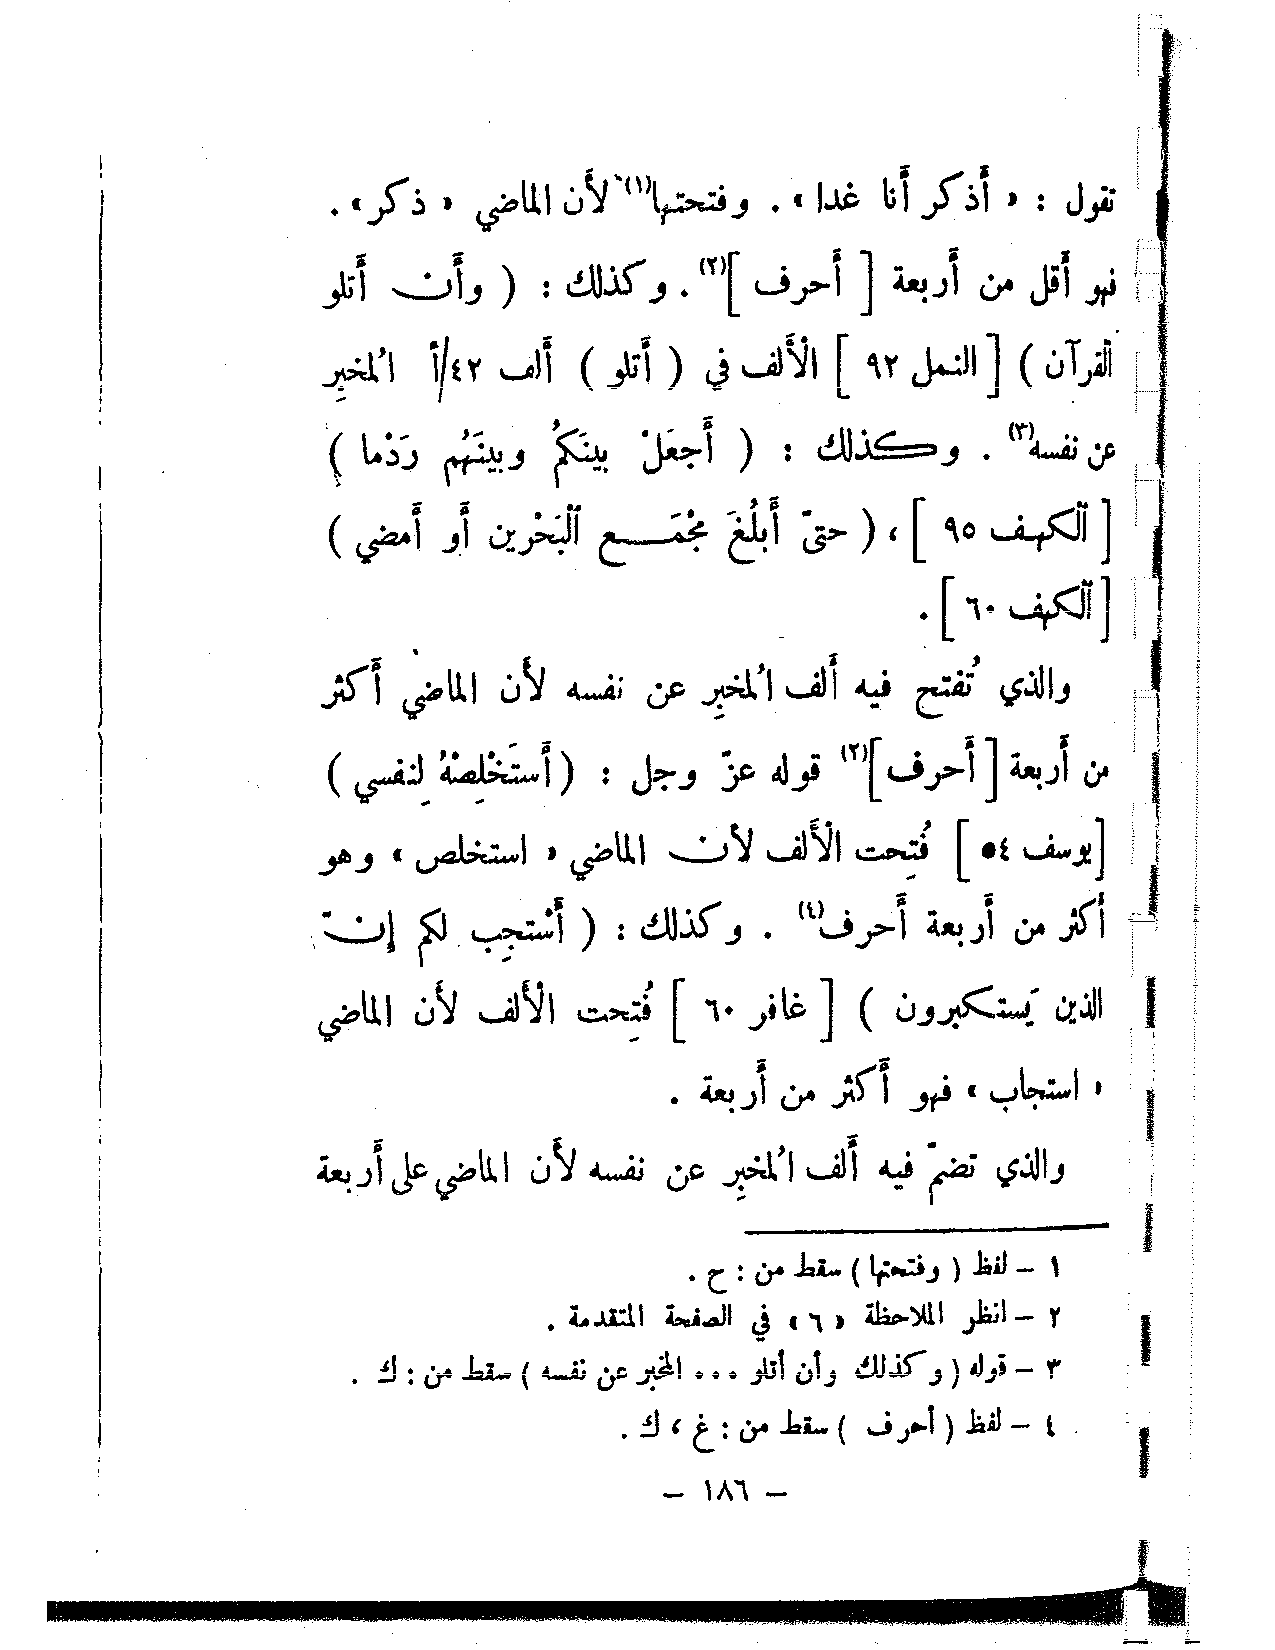 تقول : « أَذكر أَنا غدا » . وفتحتها(١) لأَن الماضي « ذكر » .
فهو أَقل من أَربعة [ أَحرف ](٢) . وكذلك : ( وأَن أَتلو
القرآن ) [ النمل ٩٢ ] الأَلف في ( أَتلو ) أَلف ٤٢/أ المُخبِر
عن نفسه(٣) . وكذلك : ( أَجعَلْ بينَكُم وبينَهُم رَدْما )
[ ٱلكهف ٩٥ ] ، ( حتىّ أَبلُغَ مَجْمَع ٱلبَحْرين أَو أَمضي )
[ ٱلكهف ٦٠ ] .
والذي تُفتح فيه أَلف المُخبِر عن نفسه لأَن الماضي أَكثر
من أَربعة [ أَحرف ](٢) قوله عزّ وجل : ( أَستَخْلِصْهُ لِنفسي )
[يوسف ٥٤ ] فُتِحت الأَلف لأَن الماضي « استخلص » وهو
أَكثر من أَربعة أَحرف(٤) . وكذلك : ( أَسْتجِب لكم إنّ
الذين يَستكبرون ) [ غافر ٦٠ ] فُتِحت الأَلف لأَن الماضي
« استجاب » فهو أَكثر من أَربعة .
والذي تضمّ فيه أَلف المُخبِر عن نفسه لأَن الماضي على أَربعة
١ – لفظ ( وفتحتها ) سقط من : ح .
٢ – انظر الملاحظة « ٦ » في الصفحة المتقدمة .
٣ – قوله ( وكذلك وأن أتلو ... المخبر عن نفسه ) سقط من : ك .
٤ – لفظ ( أحرف ) سقط من : غ ، ك .
– ١٨٦ –